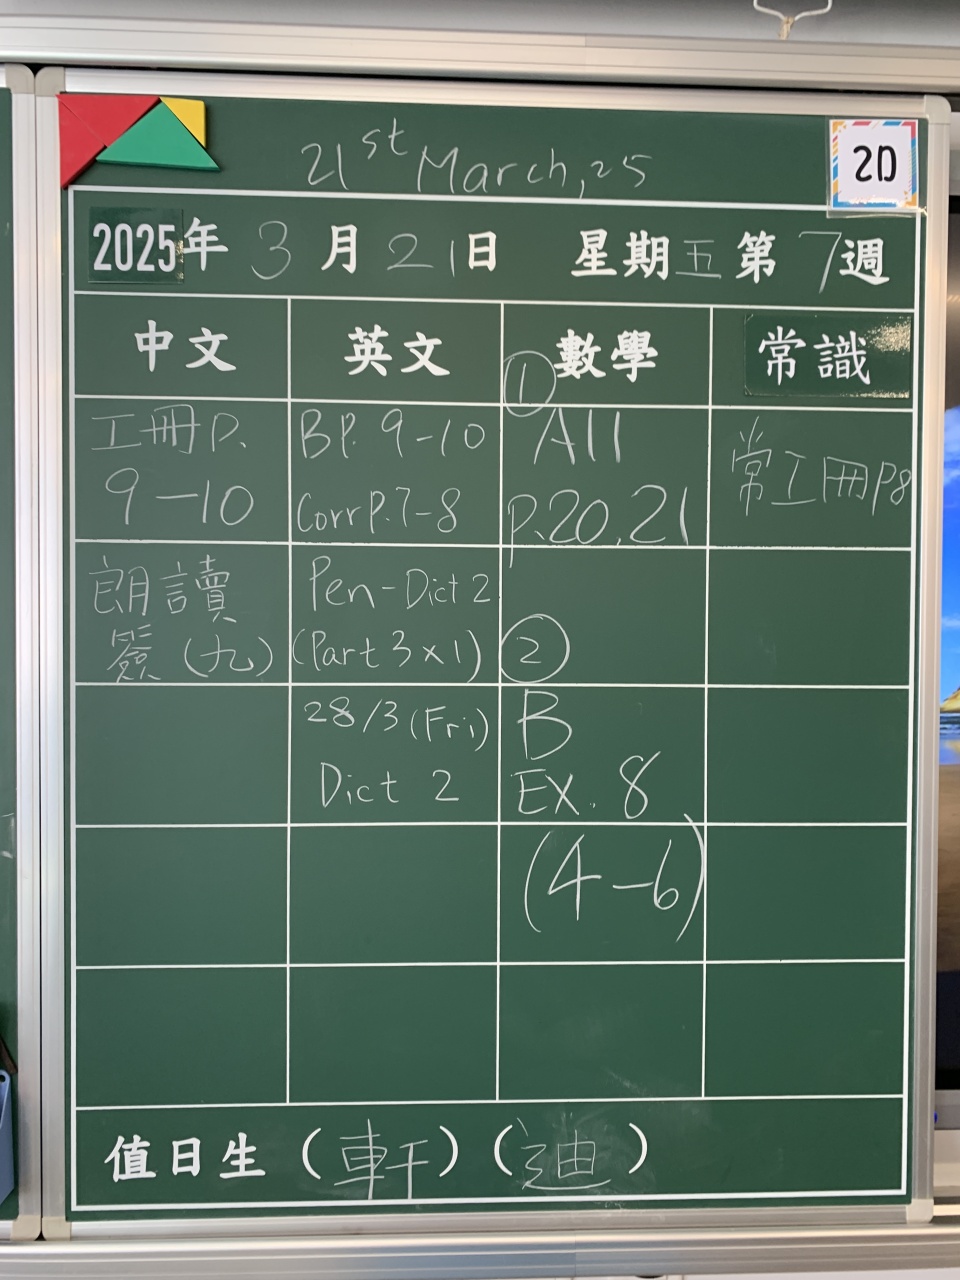 21st March, 25
2D
2025年 3 月 21 日 星期五 第 7 週
中文 英文 數學 常識
工冊P.
9-10
朗讀
簽(九)
BP. 9-10
Corr P.7-8
Pen-Dict 2
(Part 3 x 1)
28/3 (Fri)
Dict 2
①
A11
P.20, 21
②
B
EX. 8
(4-6)
常工冊P8
值日生 (軒) (迪)